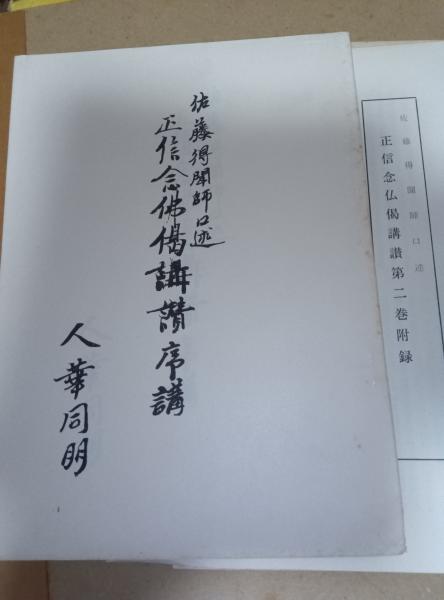 佐藤得聞師口述
正信念佛偈講讃序講
人華同朋
佐藤得聞師口述
正信念仏偈講讃第二巻附録